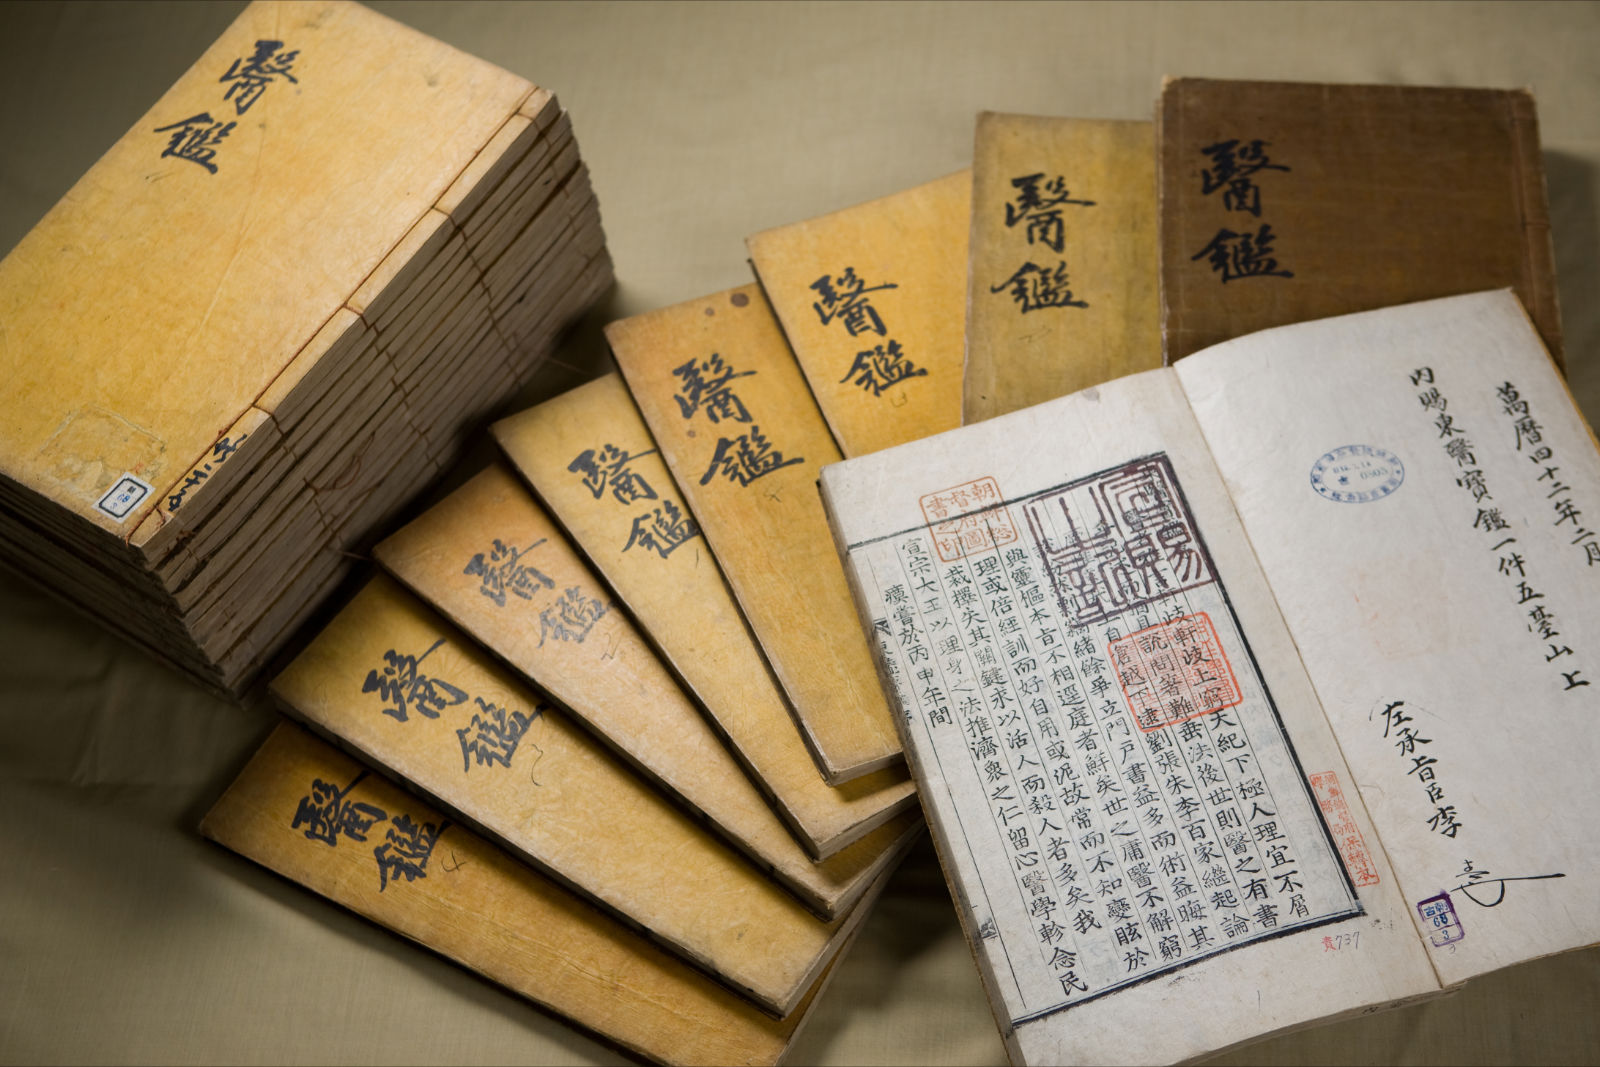 醫鑑
醫鑑
醫鑑
醫鑑
醫鑑
醫鑑
醫鑑
醫鑑
醫鑑
萬曆四十二年二月
內賜東醫寶鑑一件五臺山上
左承旨臣李
岐軒岐上窮天紀下極人理宜不屑
說問著難垂法後世則醫之有書
自倉越下逮劉張朱李百家繼起論
緒餘爭立門戶書益多而術益晦其
與靈樞本旨不相逕庭者鮮矣世之庸醫不解窮
理或倍經訓而好自用或泥故常而不知變眩於
裁擇失其關鍵求以活人而殺人者多矣我
宣宗大王以理身之法推濟衆之仁留心醫學軫念民
瘼嘗於丙申年間
朝鮮總督府圖書之印
貴737